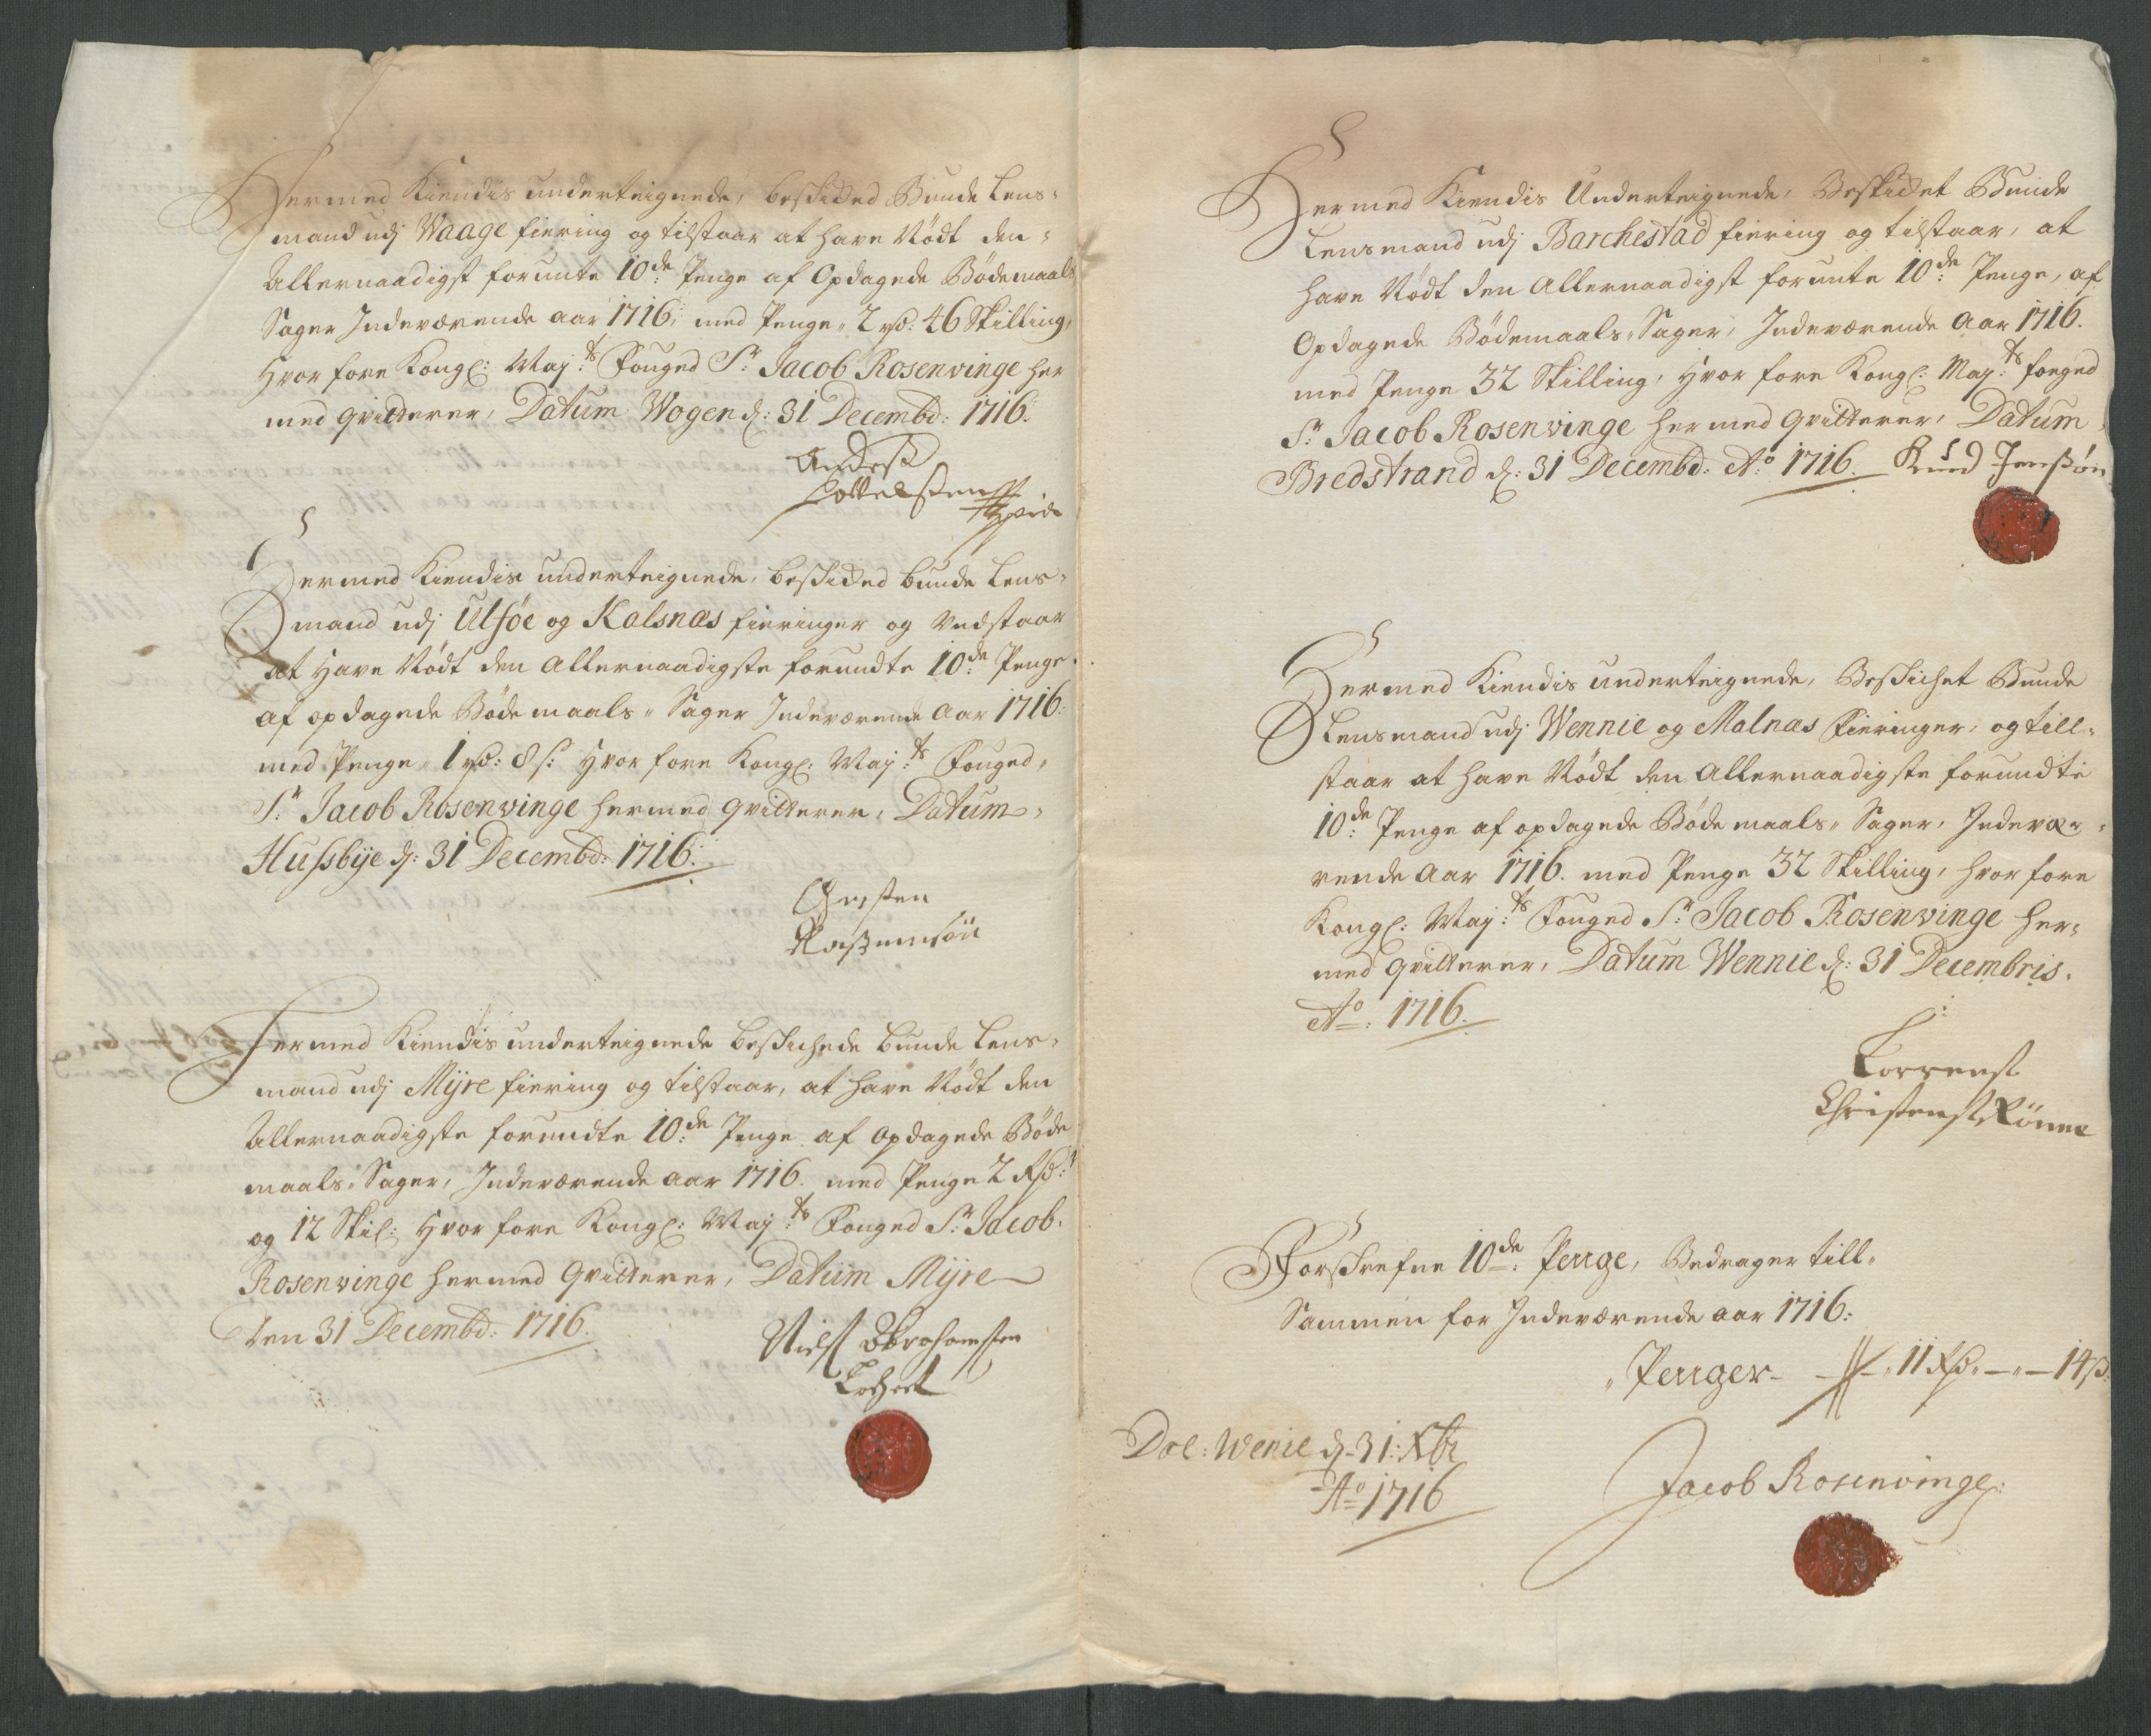 Hermed Kiendis underteignede, beskicked Bunde Lens-
mand udj Waage fiering og tilstaar at have Nödt den
Allernaadigst forunte 10de: Penge af Opdagede Bödemaals
Sager Indeværende aar 1716, med Penge 2 rd: 46 Skilling,
Hvor fore Kongl: Maj:ts Fouged Sr: Jacob Rosenvinge her
med qvitterer, Datum Wogen d: 31 Decembd: 1716.
Hermed Kiendis underteignede, beskicked bunde Lens-
mand udj Ulföe og Kalsnæs fieringer og Vedstaar
at Have Nödt den Allernaadigste forundte 10de: Penge
af opdagede Bödemaals Sager Indeværende Aar 1716:
med Penge 1 rd: 8 s: Hvor fore Kongl: Maj:ts Fouged,
Sr: Jacob Rosenvinge hermed qvitterer, Datum,
Hussbÿe d: 31 Decembd: 1716.
Christen
Rassmusön
Hermed Kiendis underteignede beskichede bunde Lens-
mand udj Mÿre fiering og tilstaar, at have Nödt den
Allernaadigste forundte 10de: Penge af Opdagede Böde
maals Sager, Indeværende aar 1716. med Penge 2 Rd:
og 12 Skil: Hvor fore Kongl: Maj:ts Fouged Sr: Jacob
Rosenvinge hermed Qvitterer, Datum Mÿre
den 31 Decembd: 1716.
Niels Abrahamsen
Hermed Kiendis Underteignede, Beskicket Bunde
Lensmand udj Barchestad fiering og tilstaar, at
have Nödt den Allernaadigst forunte 10de: Penge, af
Opdagede Bödemaals Sager, Indeværende Aar 1716.
med Penge 32 Skilling, Hvor fore Kongl: May:ts foeged
Sr: Jacob Rosenvinge hermed Qvitterer, Datum
Bredstrand d: 31 Decembd: Ao 1716. Knud Jenssön
Hermed Kiendis underteignede, Beskichet Bunde
Lensmand udj Wennie og Malnæs Fieringer, og till-
staar at have Nödt den Allernaadigste forundte
10de: Penge af opdagede Bödemaals Sager, Indevæ-
rende Aar 1716. med Penge 32 Skilling, hvor fore
Kongl: Maj:ts Fouged Sr: Jacob Rosenvinge her-
med qvitterer, Datum Wennie d: 31 Decembris.
Ao: 1716.
Lorrens
Christens Rönne
Forskrefne 10de: Penge, Bedrager till-
Sammen for Indeværende aar 1716:
Penger - 11 Rd - 14 s
Dat: Wenie d. 31: Xbr
Ao 1716
Jacob Rosenvinge